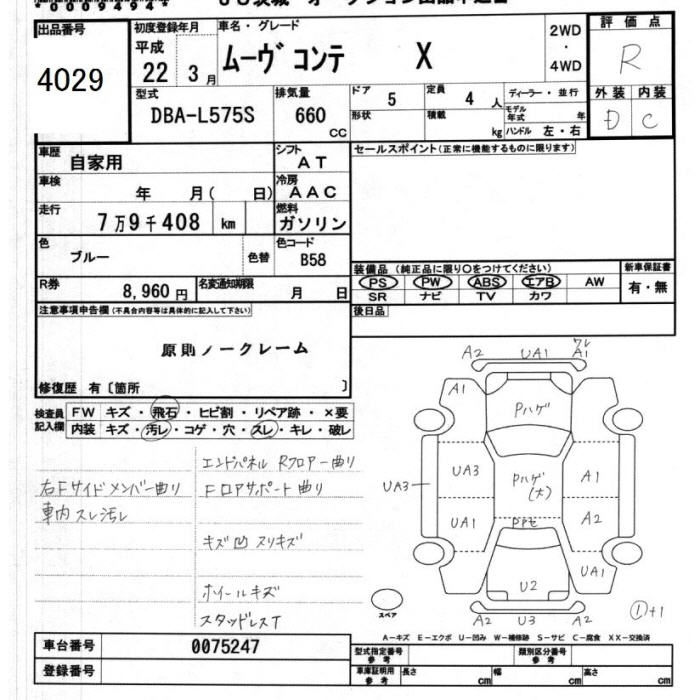 出品番号
4029
初度登録年月
平成
22 3月
車名・グレード
ムーヴコンテ X
2WD
・
4WD
評価点
R
外装 内装
D C
型式
DBA-L575S
排気量
660
CC
ドア
5
定員
4 人
ディーラー・並行
形状
積載
kg
モデル年式
年
ハンドル 左・右
車歴
自家用
シフト
AT
セールスポイント(正常に機能するものに限ります)
車検
年 月( 日)
冷房
AAC
走行
7万9千408 km
燃料
ガソリン
色
ブルー
色替
色コード
B58
装備品(純正品に限り○をつけてください)
新車保証書
PS PW ABS エアB AW
有・無
SR ナビ TV カワ
R券
8,960円
名変通知期限
月 日
後日品
注意事項申告欄(不具合内容等は具体的に記入して下さい)
原則ノークレーム
修復歴 有〔箇所 〕
検査員
記入欄
FW キズ・飛石・ヒビ割・リペア跡・×要
内装 キズ・汚レ・コゲ・穴・スレ・キレ・破レ
エンドパネル Rフロアー曲り
右Fサイドメンバー曲り
Fロアサポート曲り
車内スレ汚レ
キズ凹スリキズ
ホイールキズ
スタッドレスT
A2 UA1 ワレ A1
A1
Pハゲ
UA3
UA3
Pハゲ
(大)
A1
UA1
A2
U2
UA1
A2 U3 A2
スペア
①+1
A-キズ E-エクボ U-凹み W-補修跡 S-サビ C-腐食 XX-交換済
車台番号
0075247
登録番号
型式指定番号
参考
類別区分番号
参考
車庫証明用
参考
長さ
cm
幅
cm
高さ
cm